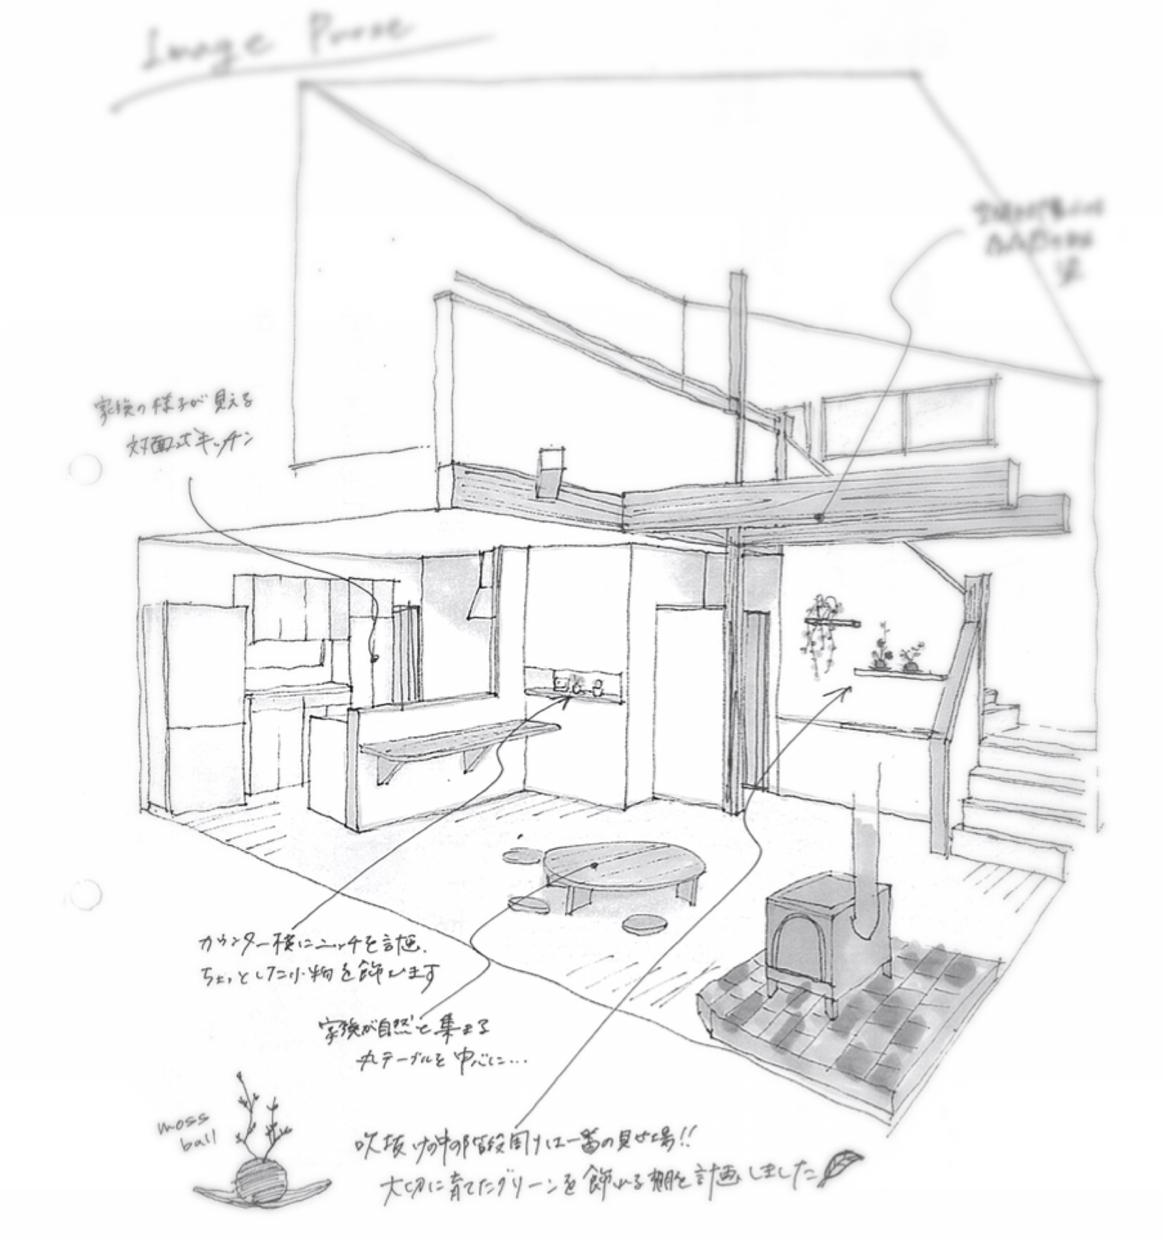 Image
家族の様子が見える
対面式キッチン
カウンター横にニッチを計画.
ちょっとした小物を飾れます
家族が自然と集まる
丸テーブルを中心に...
moss
ball
吹抜けの中の階段周りは一番の見せ場!!
大切に育てたグリーンを飾れる棚を計画しました